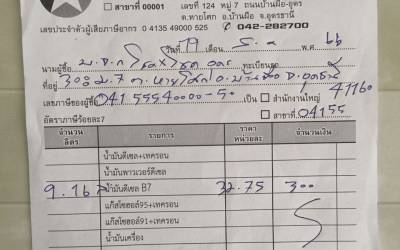 ☐ สาขาที่ 00001 เลขที่ 124 หมู่ 7 ถนนบ้านผือ-อุดร
ต.หายโศก อ.บ้านผือ จ.อุดรธานี
เลขประจำตัวผู้เสียภาษีอากร 0 4135 49000 525 042-282700
วันที่ 19 เดือน ธ.ค พ.ศ. 66
นามผู้ซื้อ ทะเบียนรถ
ที่อยู่ 308 ม.7 ต.หายโศก อ.บ้านผือ จ.อุดรธานี 41160
เลขภาษีของผู้ซื้อ เป็น ☐ สำนักงานใหญ่
อัตราภาษีร้อยละ7 ☐ สาขาที่ 04155
จำนวนลิตร รายการ ราคาหน่วยละ จำนวนเงิน
น้ำมันดีเซล+เทครอน
น้ำมันพาวเวอร์ดีเซล
9.16 น้ำมันดีเซล B7 32.75 300
แก๊สโซฮอล์95+เทครอน
แก๊สโซฮอล์91+เทครอน
น้ำมันเครื่อง